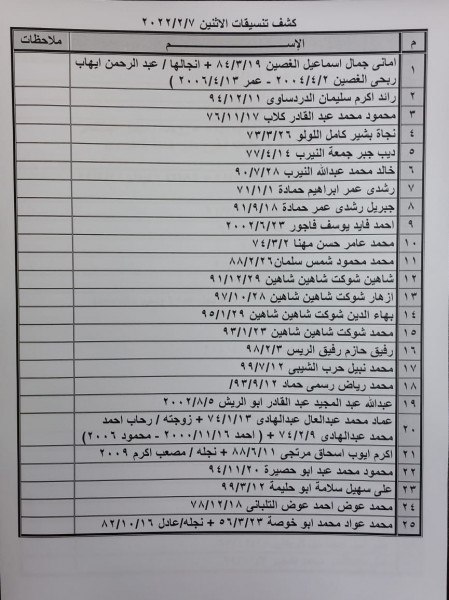 كشف تنسيقات الاثنين ٢٠٢٢/٢/٧
م الإســـم ملاحظات
١ امانى جمال اسماعيل الغصين ٨٤/٣/١٩ + انجالها / عبد الرحمن ايهاب
ربحى الغصين ٢٠٠٤/٤/٢ - عمر ٢٠٠٦/٤/١٣ )
٢ رائد اكرم سليمان الدردساوى ٩٤/١٢/١١
٣ محمود محمد عبد القادر كلاب ٧٦/١١/١٧
٤ نجاة بشير كامل اللولو ٧٣/٣/٢٦
٥ ديب جبر جمعة النيرب ٧٧/٤/١٤
٦ خالد محمد عبدالله النيرب ٩٠/٧/٢٨
٧ رشدى عمر ابراهيم حمادة ٧١/١/١
٨ جبريل رشدى عمر حمادة ٩١/٩/١٨
٩ احمد فايد يوسف فاجور ٢٠٠٢/٦/٢٣
١٠ محمد عامر حسن مهنا ٧٤/٣/٢
١١ محمد محمود شمس سلمان ٨٨/٢/٢٦
١٢ شاهين شوكت شاهين شاهين ٩١/١٢/٢٩
١٣ ازهار شوكت شاهين شاهين ٩٧/١٠/٢٨
١٤ بهاء الدين شوكت شاهين شاهين ٩٥/١/٢٩
١٥ محمد شوكت شاهين شاهين ٩٣/١/٢٣
١٦ رفيق حازم رفيق الريس ٩٨/٢/٣
١٧ محمد نبيل حرب الشيبى ٩٩/٧/١٢
١٨ محمد رياض رسمى حماد ٩٣/٩/١٢/
١٩ عبدالله عبد المجيد عبد القادر ابو الريش ٢٠٠٢/٨/٥
٢٠ عماد محمد عبدالعال عبدالهادى ٧٤/١/١٣ + زوجته / رحاب احمد
محمد عبدالهادى ٧٤/٢/٩ + ( احمد ٢٠٠٠/١١/١٦ - محمود ٢٠٠٦ )
٢١ اكرم ايوب اسحاق مرتجى ٨٨/٦/١١ + نجله / مصعب اكرم ٢٠٠٩
٢٢ محمود محمد عبد ابو حصيرة ٩٤/١١/٢٠
٢٣ على سهيل سلامة ابو حليمة ٩٩/٣/١٢
٢٤ محمد عوض احمد عوض التلبانى ٧٨/١٢/١٨
٢٥ محمد عواد محمد ابو خوصة ٥٦/٣/٢٣ + نجله/عادل ٨٢/١٠/١٦